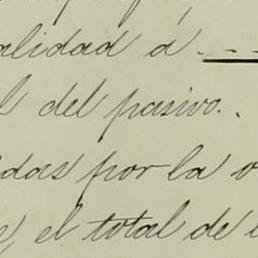 alidad á
l del pasivo.
das por la o
el total de